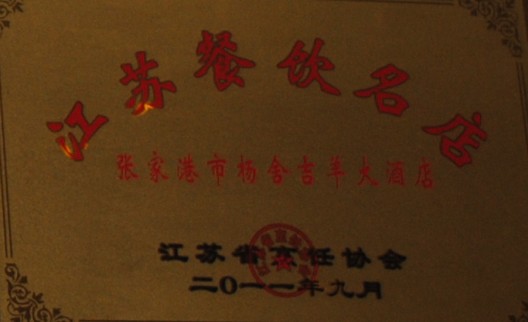 江苏餐饮名店
张家港市杨舍吉羊大酒店
江苏省烹饪协会
二0一一年九月